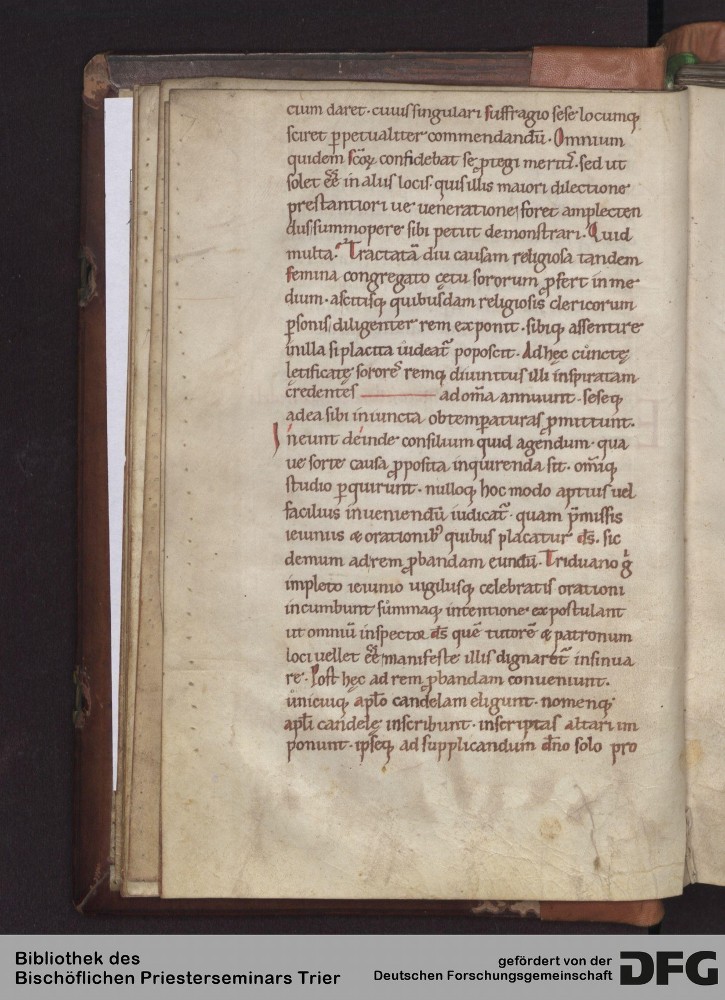 cium daret· cuius singulari suffragio sese locumq;
sciret ꝑpetualiter commendandū. Omnium
quidem sc̄oꝝ confidebat se ꝓtegi meritis· sed ut
solet ee̅ in aliis locis· quis illis maiori dilectione
prestantiori ue ueneratione foret amplecten
dus summopere sibi petiit demonstrari. Quid
multa? Tractatā diu causam religiosa tandem
femina congregato cętu sororum ꝓfert in me
dium· ascitisq; quibusdam religiosis clericorum
ꝑsonis diligenter rem exponit· sibiq; assentire
in illa si placita uideat̄ poposcit. Ad hęc cunctę
lętificatę sorores remq; diuinitus illi inspiratam
credentes ad om̄a annuunt· seseq;
ad ea sibi iniuncta obtemꝑaturas ꝓmittunt.
Ineunt deinde consilium quid agendum· qua
ue sorte causa ꝓposita inquirenda sit· om̄iq;
studio ꝑquirunt· nulloq; hoc modo aptius uel
facilius inueniendū iudicat̄· quam p̄missis
ieiuniis & orationib; quibus placatur ds̄· sic
demum ad rem ꝓbandam eundū. Triduano gͥ
impleto ieiunio uigiliisq; celebratis orationi
incumbunt summaq; intentione expostulant
ut omniū inspector ds̄ quē tutorē & patronum
loci uellet ee̅ manifeste illis dignaret̄ insinua
re. Post hęc ad rem ꝓbandam conueniunt.
unicuiq; apl̄o candelam eligunt· nomenq;
apl̄i candelę inscribunt· inscriptas altari im
ponunt· ipsęq; ad supplicandum dn̄o solo pro
Bibliothek des
Bischöflichen Priesterseminars Trier
gefördert von der
Deutschen Forschungsgemeinschaft DFG